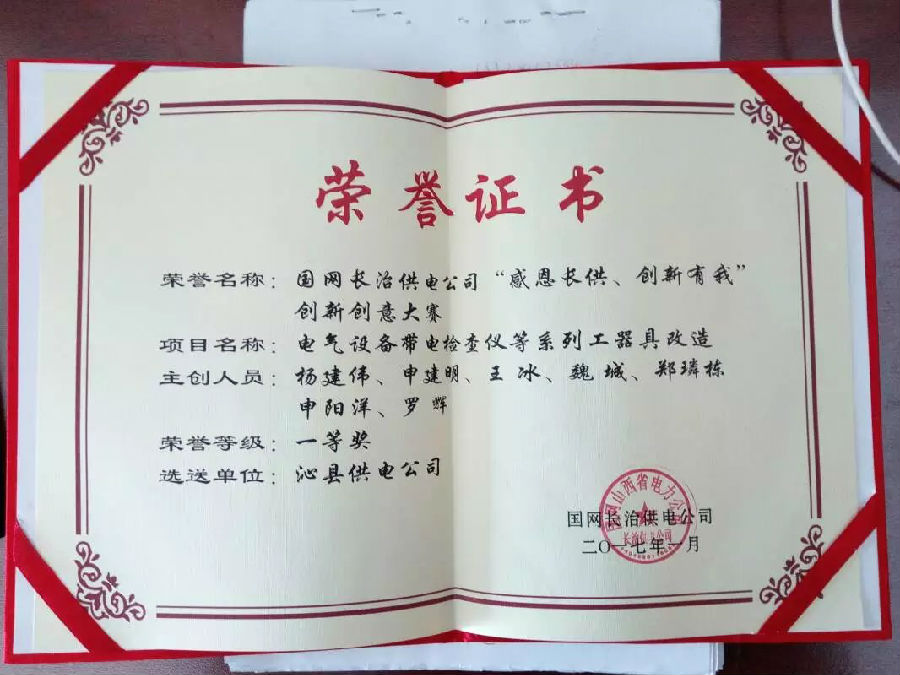 荣誉证书
荣誉名称：国网长治供电公司“感恩长供、创新有我”
创新创意大赛
项目名称：电气设备带电检查仪等系列工器具改造
主创人员：杨建伟、申建明、王冰、魏城、郑璘栋
申阳洋、罗辉
荣誉等级：一等奖
选送单位：沁县供电公司
国网山西省电力公司
长治供电公司
国网长治供电公司
二〇一七年一月